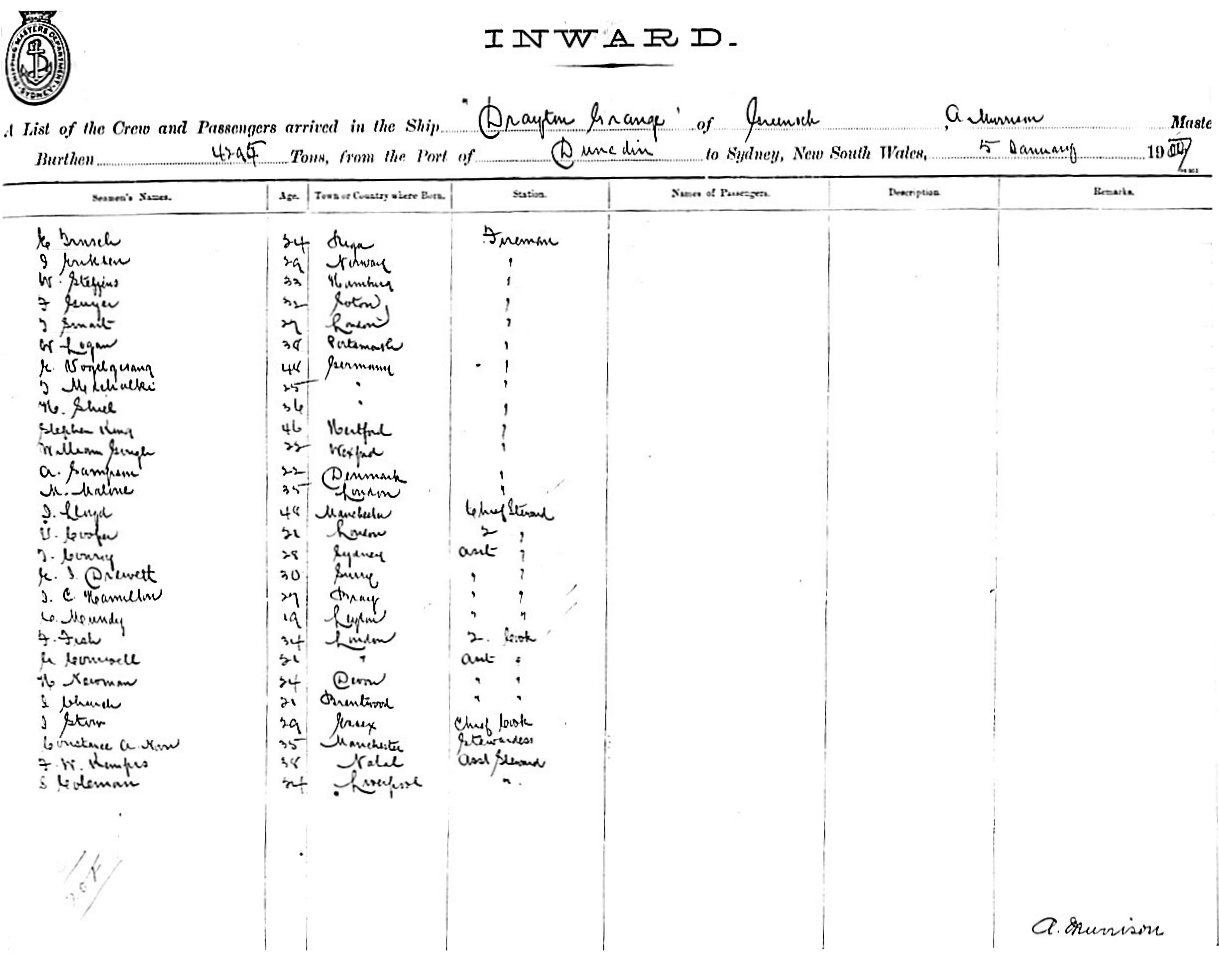 SHIPPING MASTERS DEPARTMENT SYDNEY
INWARD.
A List of the Crew and Passengers arrived in the Ship "Drayton Grange" of Greenock, A Murrison Maste
Burthen Tons, from the Port of Dunedin to Sydney, New South Wales, 5 January 19
Seamen's Names. Age. Town or Country where Born. Station. Names of Passengers. Description. Remarks.
Riga Fireman
29 Norway "
W. Steffins 33 Hamburg "
32 "
Smart 27 London "
W Logan 38 Portsmouth "
Vogelgesang 44 Germany "
25 " "
H. Shiel 36 " "
Stephen King 46 Hertford "
William Gough 22 Wexford "
A. Sampson 22 Denmark "
M. Malone 35 London "
Lloyd 48 Manchester Chief Steward
Cooper 21 London 2 "
28 Sydney asst "
Drewett 30 Surry " "
C. Hamilton 27 Bray " "
C. Mundy 19 Leyton " "
F. Fish 34 London 2. Cook
21 " asst "
H Newman 24 Devon " "
Church 21 Brentwood " "
29 Essex Chief Cook
Constance A. 35 Manchester Stewardess
F. W. Kempis 38 Natal Asst Steward
Coleman 34 Liverpool ".
A. Murrison